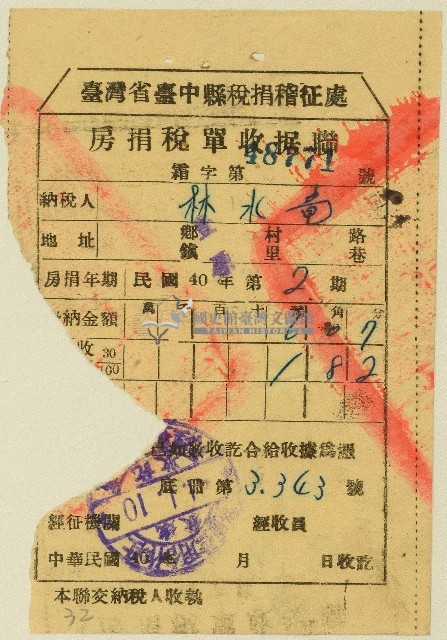 臺灣省臺中縣稅捐稽征處
房捐稅單收据聯
霜字第 48771 號
納稅人 林水
地址 鄉鎮 村里 路巷
房捐年期 民國40年第2期
納金額 萬 百十 角分
7
收 30/100 182
收訖合給收據爲憑
底冊第 3.343 號
經征機關 經收員
中華民國40年 月 日收訖
本聯交納稅人收執
32
國史館臺灣文獻館
TAIWAN HISTORICA